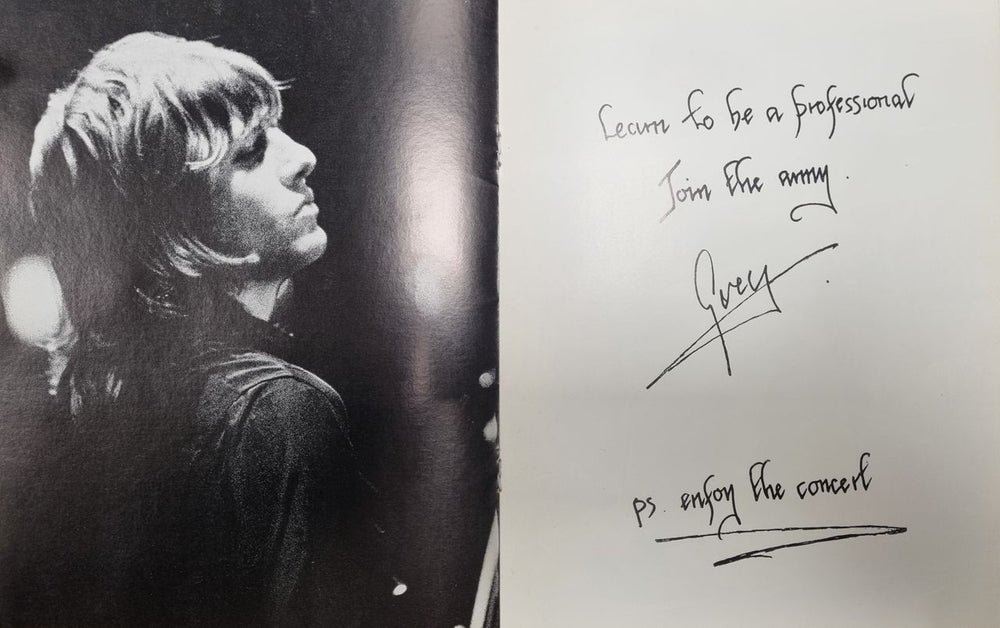 Learn to be a professional
Join the army.
Greg
ps. enjoy the concert